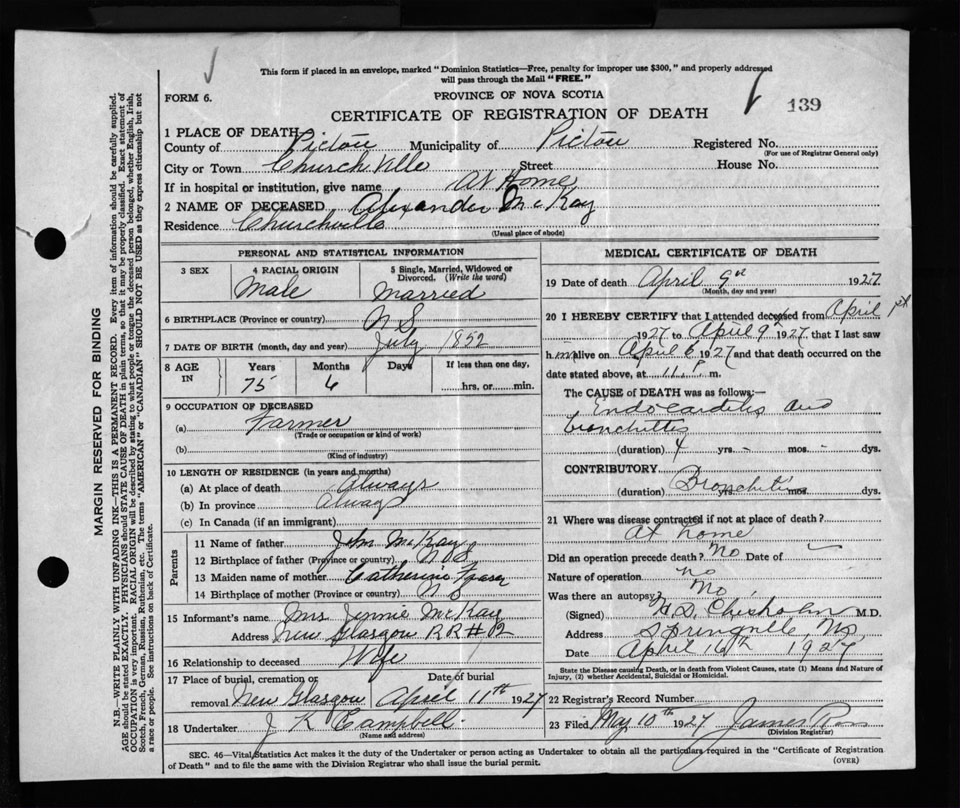 This form if placed in an envelope, marked "Dominion Statistics—Free, penalty for improper use $300," and properly addressed
will pass through the Mail "FREE."
FORM 6.
PROVINCE OF NOVA SCOTIA
139
CERTIFICATE OF REGISTRATION OF DEATH
1 PLACE OF DEATH
County of Pictou Municipality of Pictou Registered No.
(For use of Registrar General only)
City or Town Churchville Street House No.
If in hospital or institution, give name At Home
2 NAME OF DECEASED Alexander McKay
Residence Churchville
(Usual place of abode)
PERSONAL AND STATISTICAL INFORMATION
3 SEX 4 RACIAL ORIGIN 5 Single, Married, Widowed or
Divorced. (Write the word)
Male Married
6 BIRTHPLACE (Province or country) N S
7 DATE OF BIRTH (month, day and year) July 1852
8 AGE IN Years Months Days If less than one day,
75 6 hrs. or min.
9 OCCUPATION OF DECEASED
(a) Farmer
(Trade or occupation or kind of work)
(b)
(Kind of industry)
10 LENGTH OF RESIDENCE (in years and months)
(a) At place of death always
(b) In province always
(c) In Canada (if an immigrant)
Parents
11 Name of father John McKay
12 Birthplace of father (Province or country) N S
13 Maiden name of mother Catherine Fraser
14 Birthplace of mother (Province or country) N S
15 Informant's name Mrs Jennie McKay
Address New Glasgow RR#2
16 Relationship to deceased Wife
17 Place of burial, cremation or Date of burial
removal New Glasgow April 11th 1927
18 Undertaker J K Campbell
(Name and address)
MEDICAL CERTIFICATE OF DEATH
19 Date of death April 9th 1927
(Month, day and year)
20 I HEREBY CERTIFY that I attended deceased from April 1st
1927 to April 9th 1927, that I last saw
him alive on April 6 1927 and that death occurred on the
date stated above, at 11 P m.
The CAUSE of DEATH was as follows:
Endocarditis and
bronchittes
(duration) 4 yrs. mos. dys.
CONTRIBUTORY
(duration) Bronchitis mos. dys.
21 Where was disease contracted if not at place of death?
At home
Did an operation precede death? No Date of
Nature of operation no
Was there an autopsy? No
(Signed) H.D. Chisholm M.D.
Address Springville, NS
Date April 16th 1927
State the Disease causing Death, or in death from Violent Causes, state (1) Means and Nature of
Injury, (2) whether Accidental, Suicidal or Homicidal.
22 Registrar's Record Number
23 Filed May 10th 1927 James Ross
(Division Registrar)
SEC. 46—Vital Statistics Act makes it the duty of the Undertaker or person acting as Undertaker to obtain all the particulars required in the "Certificate of Registration
of Death" and to file the same with the Division Registrar who shall issue the burial permit.
(OVER)
MARGIN RESERVED FOR BINDING
N.B.—WRITE PLAINLY WITH UNFADING INK—THIS IS A PERMANENT RECORD. Every item of information should be carefully supplied.
AGE should be stated EXACTLY. PHYSICIANS should STATE CAUSE OF DEATH in plain terms, so that it may be properly classified. Exact statement of
OCCUPATION is very important. RACIAL ORIGIN will be described by stating to what people or tongue the deceased person belonged, whether English, Irish,
Scotch, French, German, Russian, Ruthenian, etc. The terms "AMERICAN" or "CANADIAN" SHOULD NOT BE USED as they express citizenship but not
a race or people. See instructions on back of Certificate.